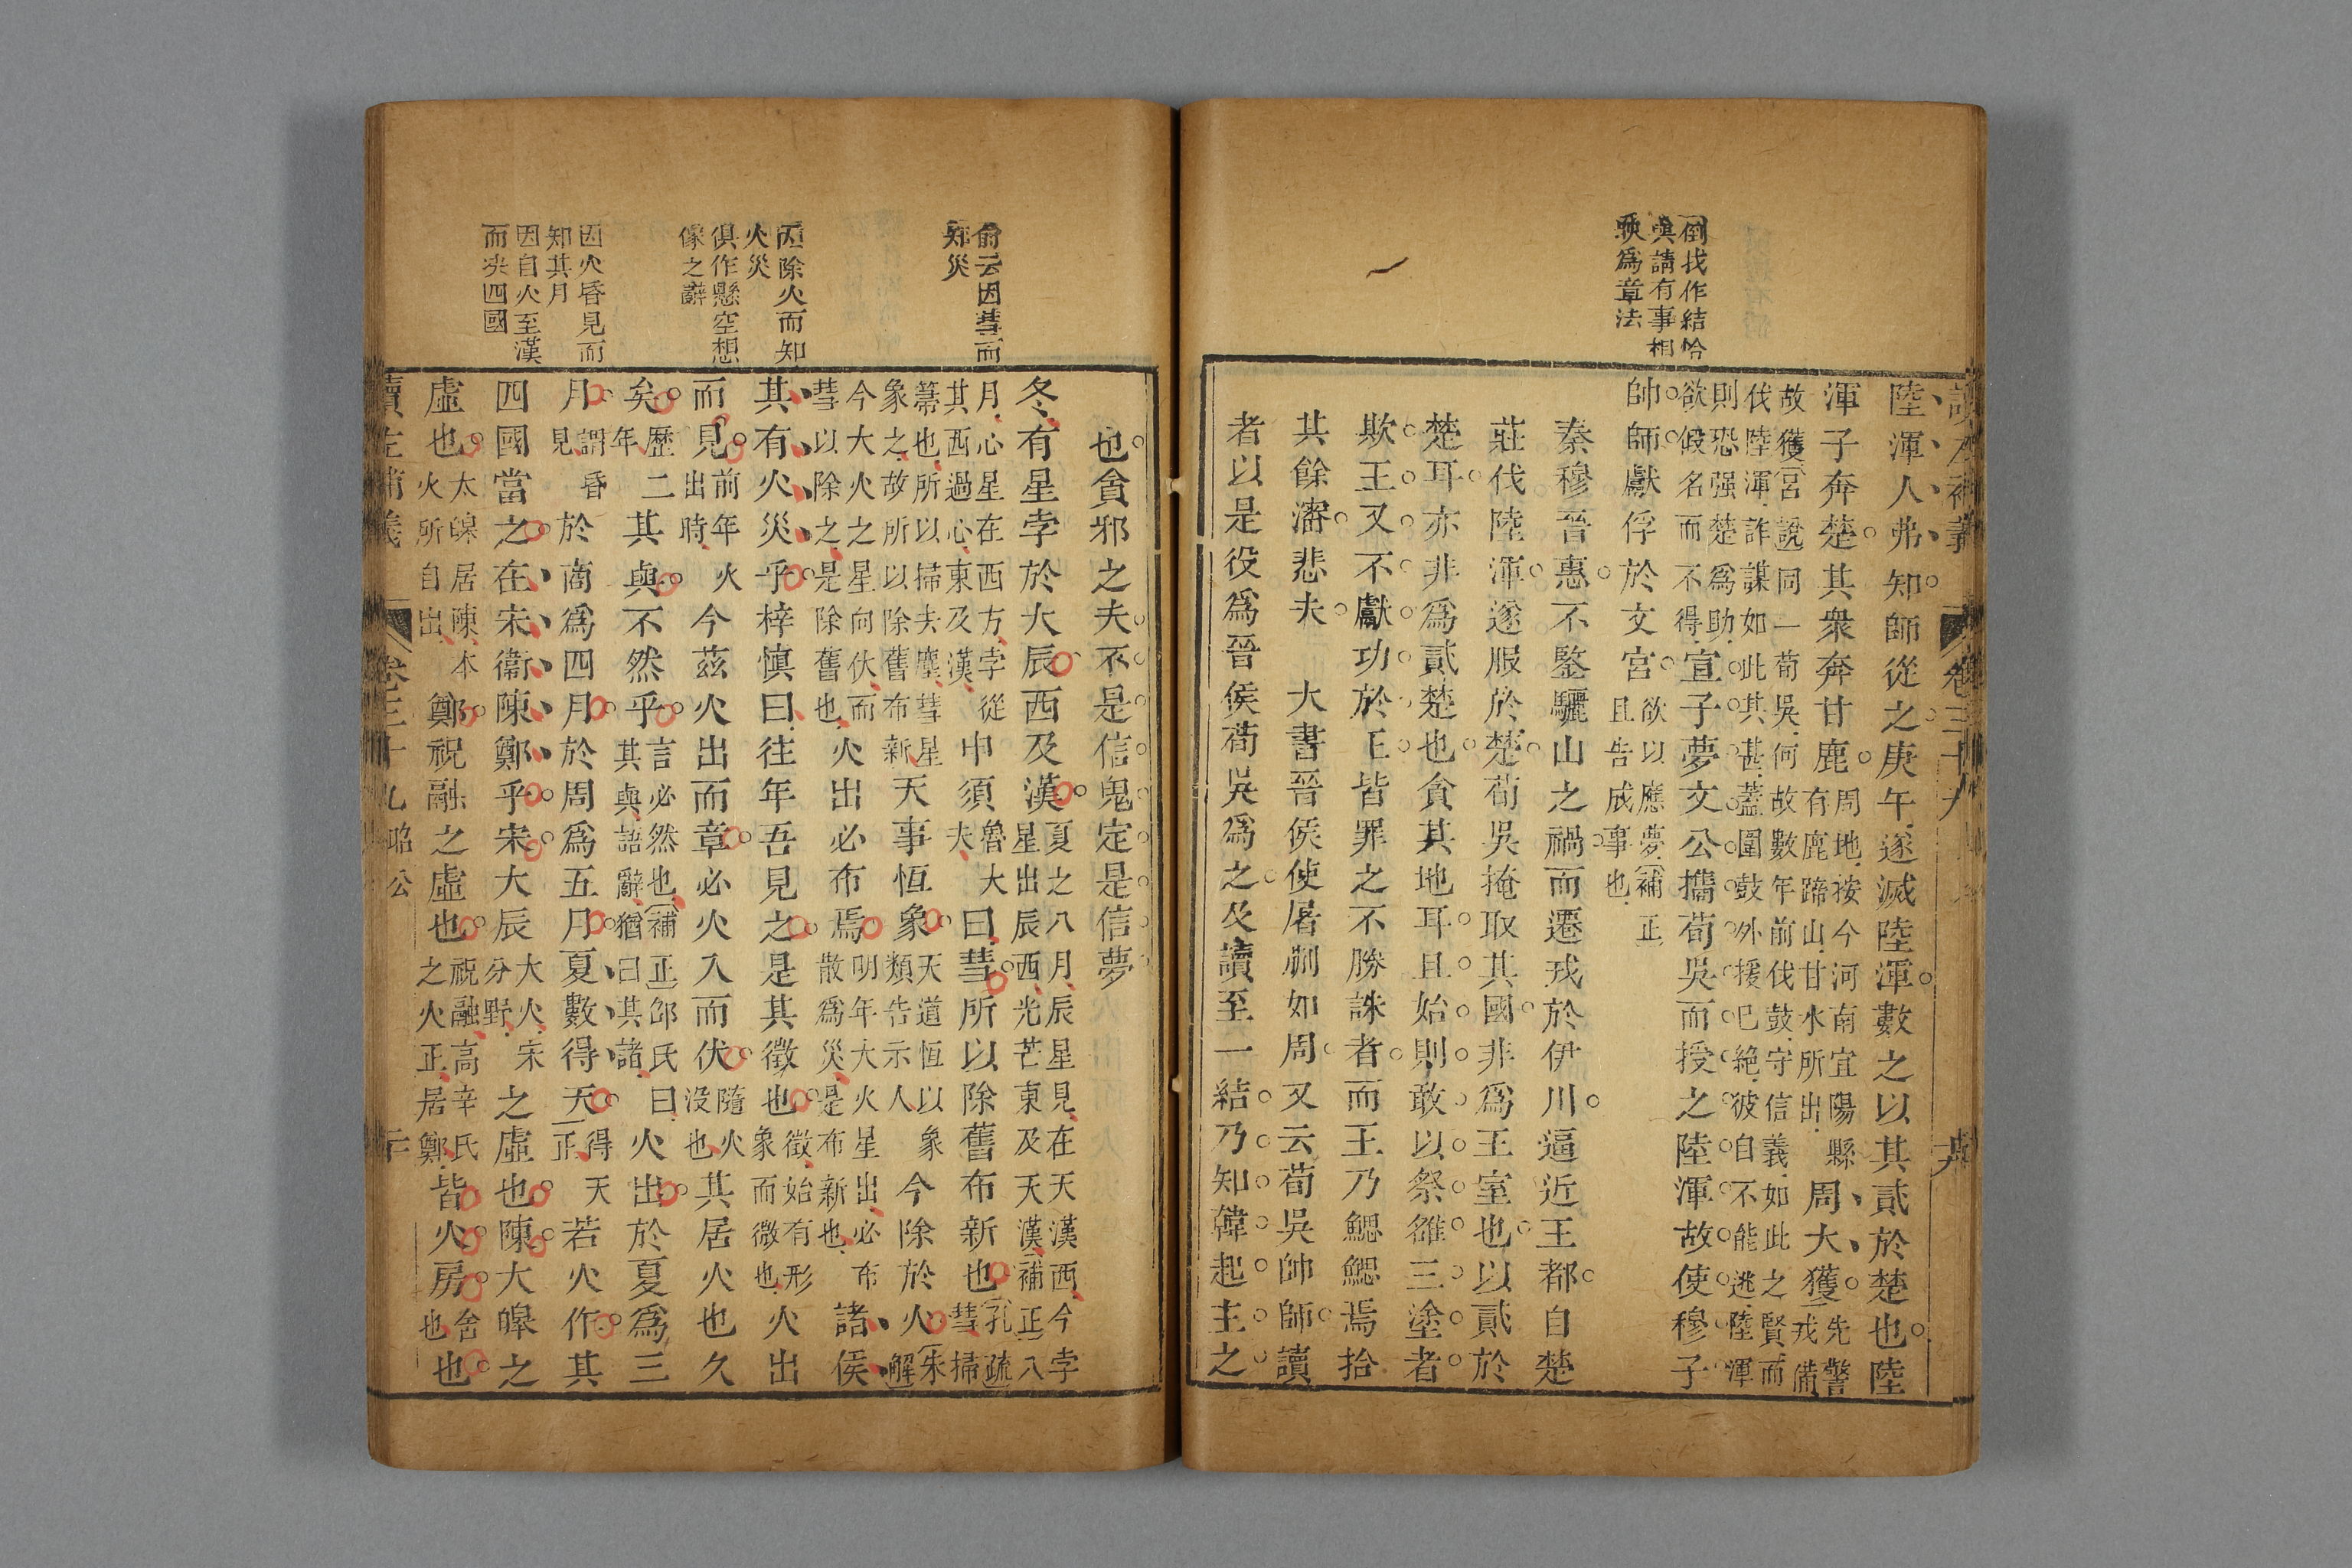 倒找作結恰
與請有事相
映爲章法
讀左補義 卷三十九
陸渾人弗知師從之庚午遂滅陸渾數之以其貳於楚也陸
渾子奔楚其衆奔甘鹿周地按今河南宜陽縣有鹿蹄山甘水所出周大獲先警戎備
故獲宮說同一荀吳何故數年前伐鼓守信義如此之賢而
伐陸渾詐謀如此其甚蓋圍鼓外援已絶彼自不能逃陸渾
則恐强楚爲助
欲假名而不得宣子夢文公攜荀吳而授之陸渾故使穆子
帥師獻俘於文宮欲以應夢補正且告成事也
秦穆晉惠不鑒驪山之禍而遷戎於伊川逼近王都自楚
莊伐陸渾遂服於楚荀吳掩取其國非爲王室也以貳於
楚耳亦非爲貳楚也貪其地耳且始則敢以祭雒三塗者
欺王又不獻功於王皆罪之不勝誅者而王乃鰓鰓焉拾
其餘瀋悲夫 大書晉侯使屠蒯如周又云荀吳帥師讀
者以是役爲晉侯荀吳爲之及讀至一結乃知韓起主之
俞云因彗而
知災
因除火而知
火災
俱作懸空想
像之辭
因火昏見而
知其月
因自火至漢
而决四國
也貪邪之夫不是信鬼定是信夢
冬有星孛於大辰西及漢夏之八月辰星見在天漢西今孛星出辰西光芒東及天漢補正八
月心星在西方孛從其西過心東及漢申須魯大夫曰彗所以除舊布新也孔疏彗掃
箒也所以掃去塵彗星象之故所以除舊布新天事恆象天道恆以象類告示人今除於火朱解
今大火之星向伏而彗以除之是除舊也火出必布焉明年大火星出必布散爲災是布新也諸侯
其有火災乎梓慎曰往年吾見之是其徵也徵始有形象而微也火出
而見前年火出時今茲火出而章必火入而伏隨火没也其居火也久
矣歷二年其與不然乎言必然也補正邵氏曰其與語辭猶曰其諸火出於夏爲三
月謂昏見於商爲四月於周爲五月夏數得天得天正若火作其
四國當之在宋衞陳鄭乎宋大辰大火宋分野之虛也陳大皥之
虛也太皥居陳本火所自出鄭祝融之虛也祝融高辛氏之火正居鄭皆火房也舍也也
讀左補義 卷三十九 昭公 二十